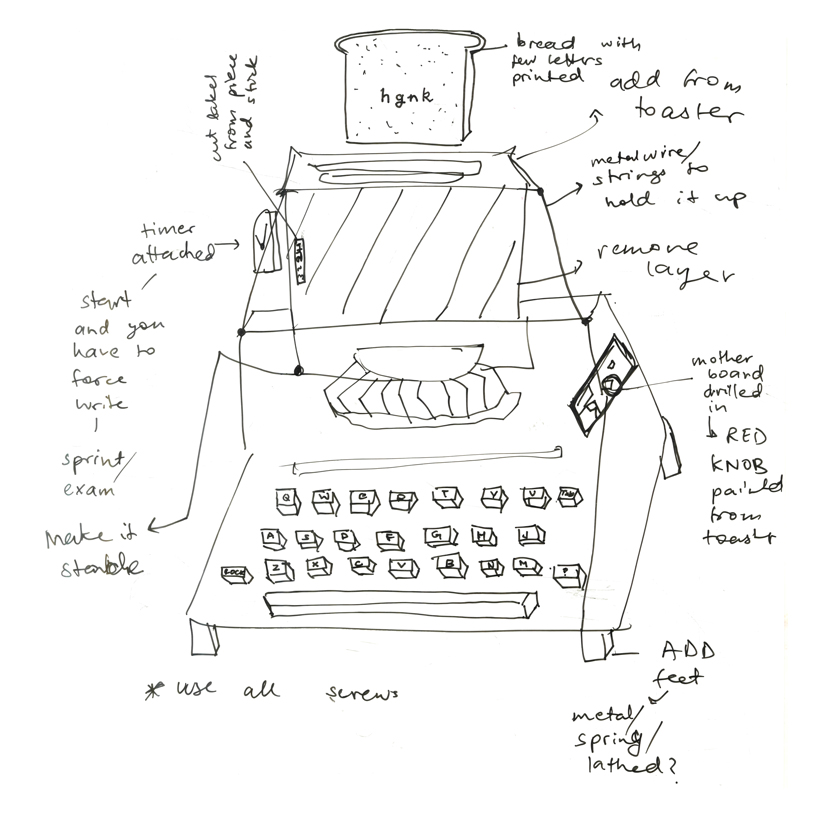 bread with
few letters
printed
hgnk
add from
toaster
cut label
from piece
and stick
metal wire/
strings to
hold it up
timer
attached
remove
layer
start
and you
have to
force
write
sprint/
exam
mother
board
drilled
in
RED
KNOB
painted
from
toaster
Make it
Q W E R T Y U
A S D F G H J
LOCK Z X C V B N M ?
* use all screws
ADD
feet
metal/
spring/
lathed?